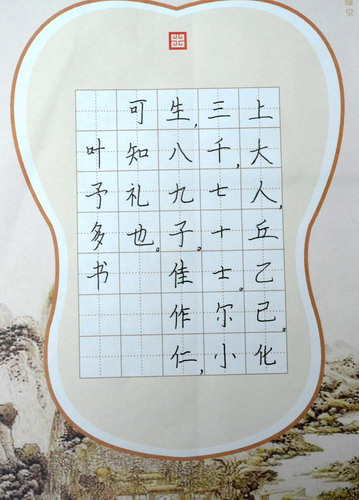 上大人,丘乙己。化
三千,七十士。尔小
生,八九子。佳作仁,
可知礼也。
叶予多书